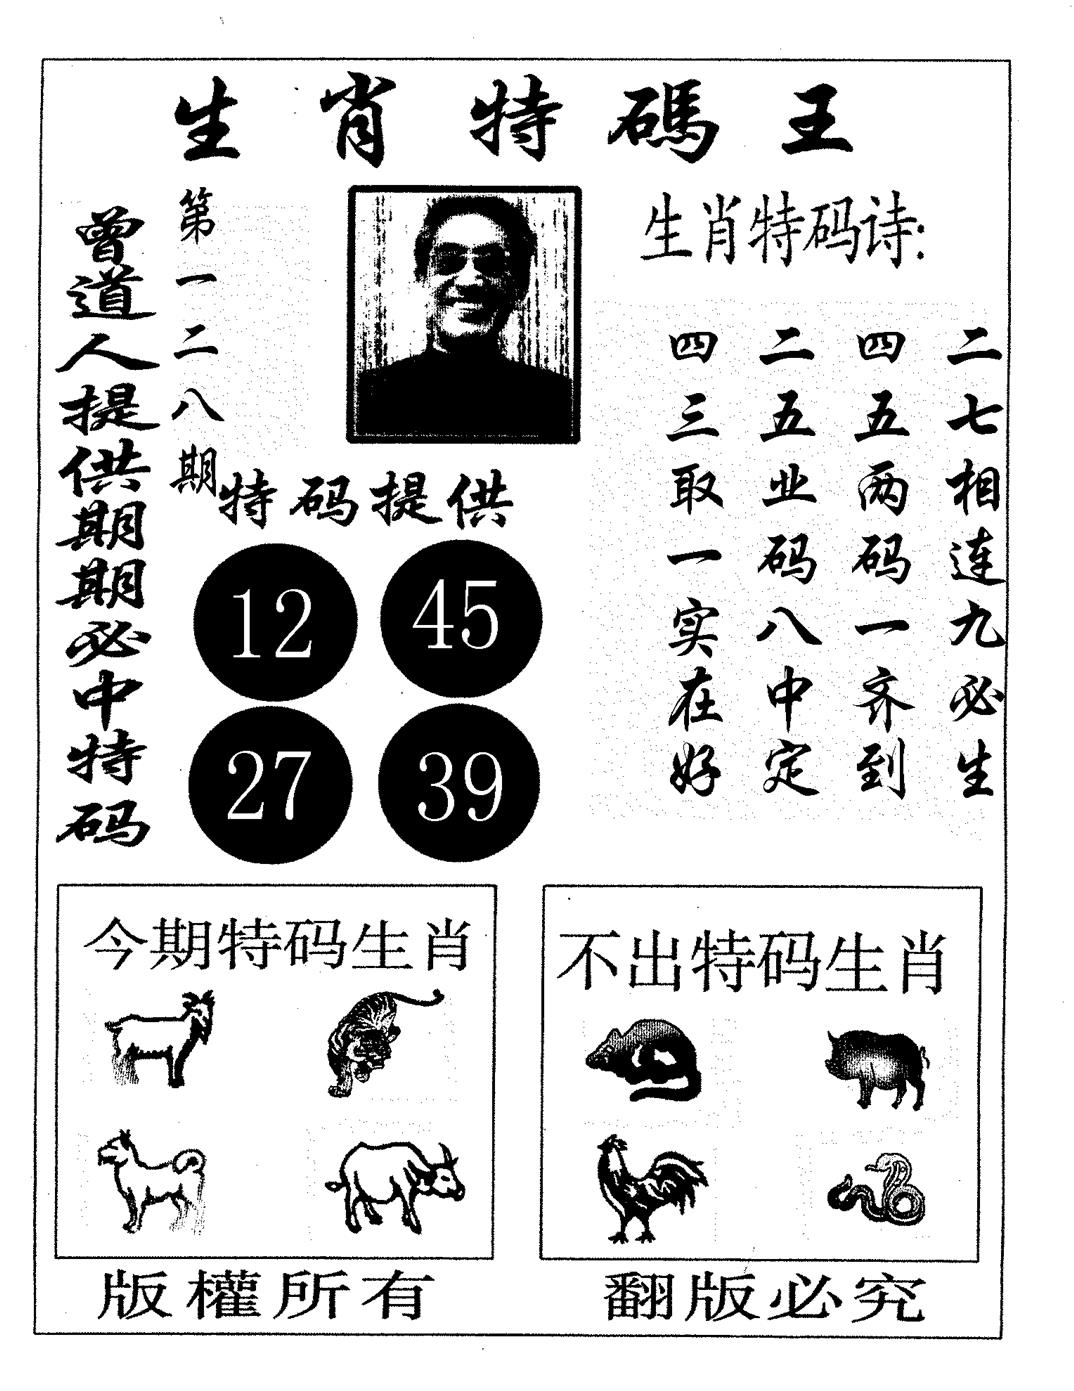 生肖特碼王
曾道人提供期期必中特码
第一二八期
生肖特码诗:
二七相连九必生
四五两码一齐到
二五业码八中定
四三取一实在好
特码提供
12 45
27 39
今期特码生肖
不出特码生肖
版權所有
翻版必究